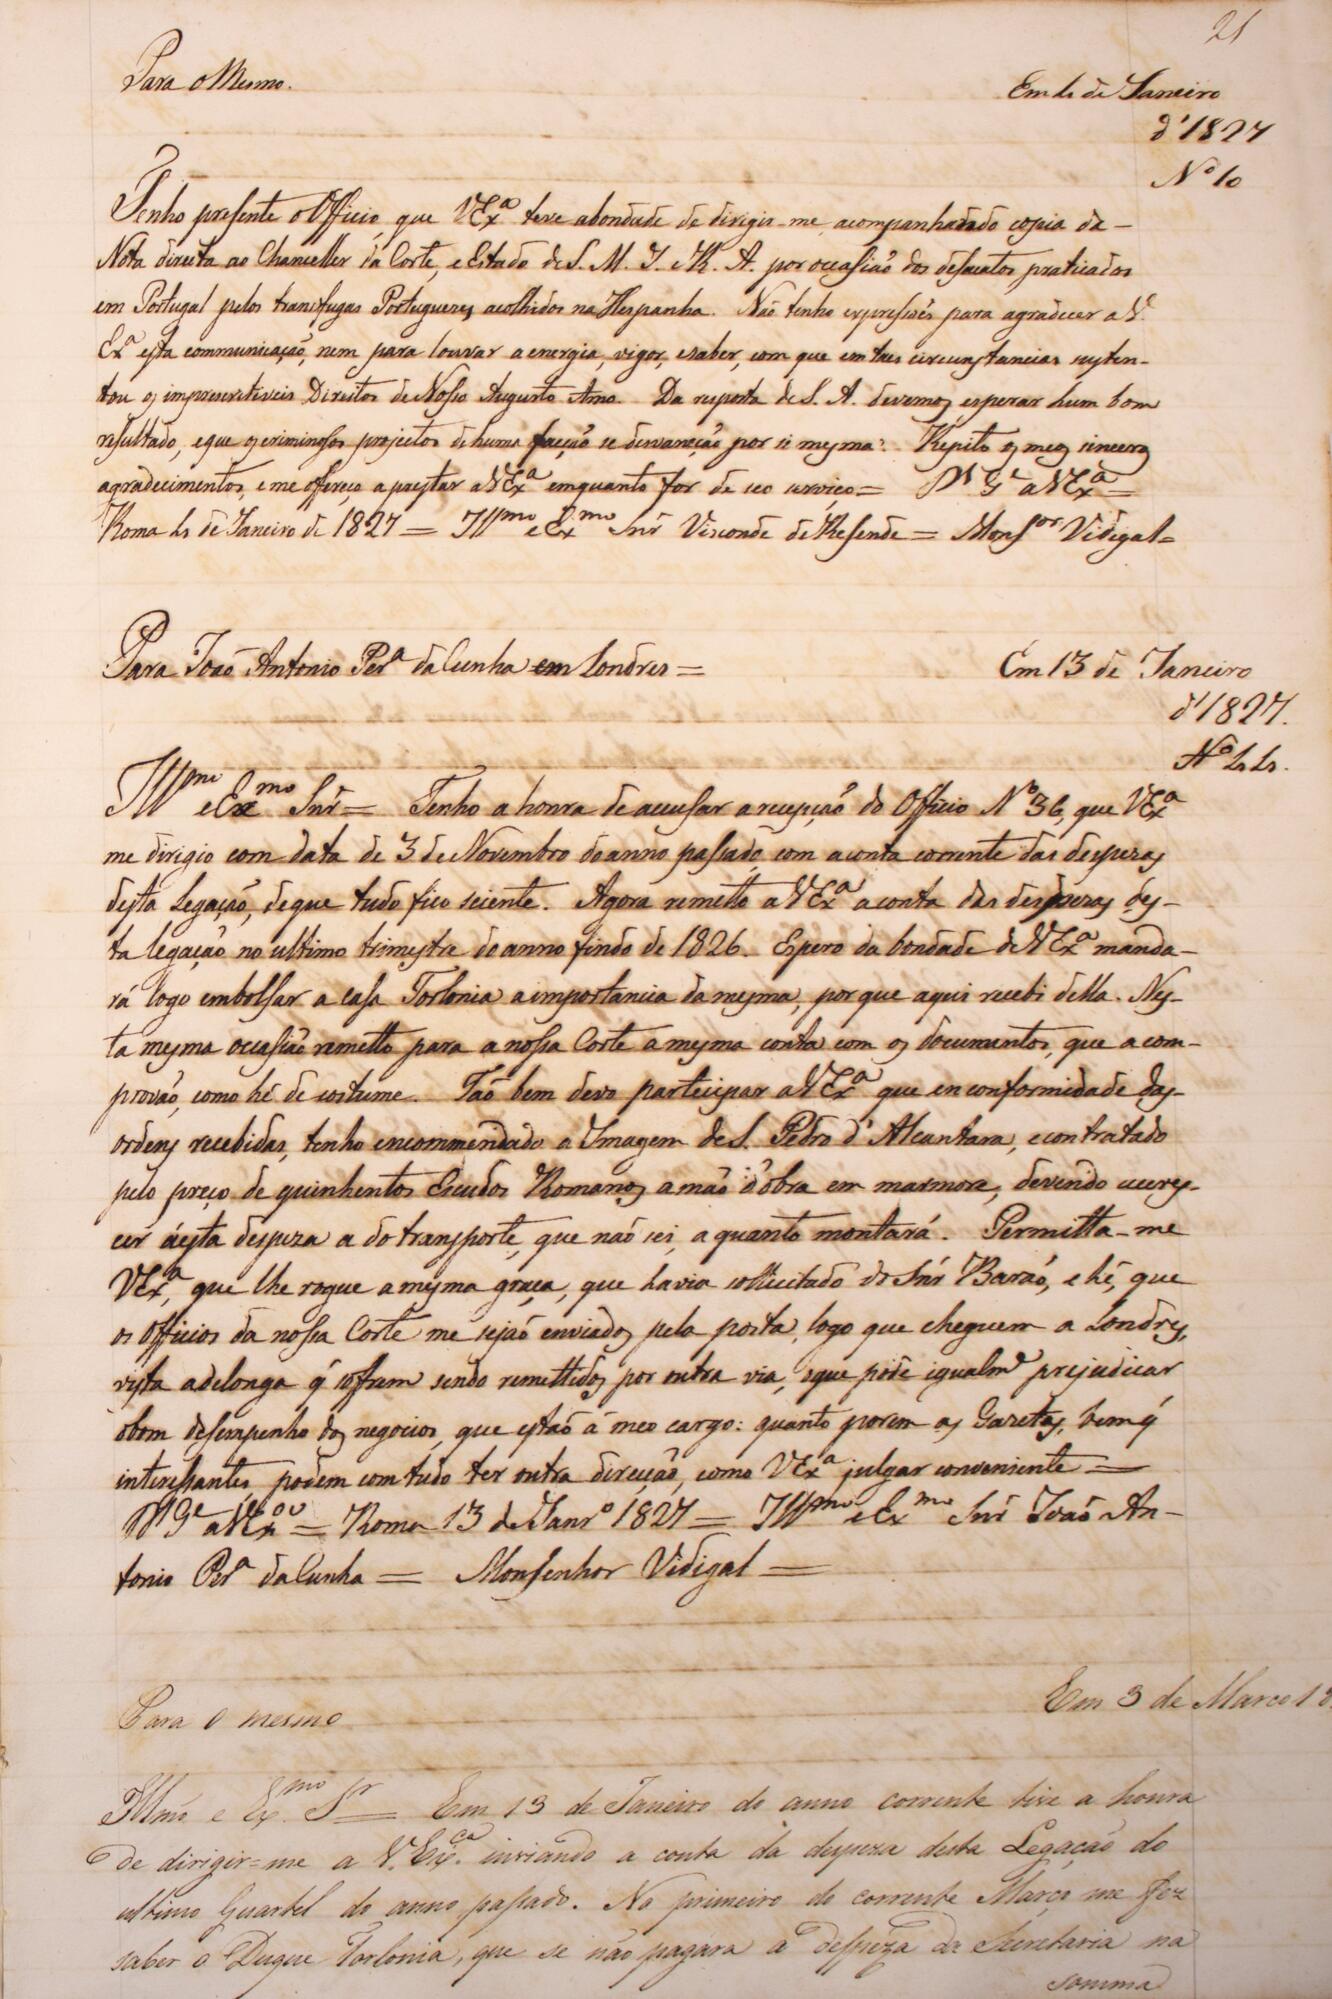 21
Para o Mesmo.
Em 4 de Janeiro
d'1827
Nº 10
Tenho presente o Officio, que VExª teve abondade de dirigir-me, acompanhado do copia da
Nota directa ao Chanceller da Corte, e Estado de S. M. I. e R. A. por occasião dos desacatos praticados
em Portugal pelos transfugas Portuguezes acolhidos na Hespanha. Não tenho expressões para agradecer a V.
Exª esta communicação, nem para louvar a energia, vigor, e saber, com que em taes circunstancias susten-
tou os imprescretiveis Direitos de Nosso Augusto Amo. Da resposta de S. A. devemos esperar hum bom
resultado, e que os criminosos projectos de huma facção se desvaneção por si mesma: Repito os meos sinceros
agradecimentos, e me offereço a prestar a VExª emquanto for de seo serviço = Ds Ge a VExª =
Roma 4 de Janeiro de 1827 = Illmo e Exmo Snr Visconde de Resende = Monsor Vidigal =
Para João Antonio Perª da Cunha em Londres =
Em 13 de Janeiro
d'1827.
Nº 44.
Illmo e Exmo Snr = Tenho a honra de accusar a recepção do Officio Nº 36, que VExª
me dirigio com data de 3 de Novembro do anno passado, com a conta corrente das despezas
desta Legação, de que tudo fico sciente. Agora remetto a VExª a conta das despezas des-
ta legação no ultimo trimestre do anno findo de 1826. Espero da bondade de VExª manda-
rá logo embolsar a casa Torlonia a importancia da mesma, por que aqui recebi della. Nes-
ta mesma occasião remetto para a nossa Corte a mesma conta com os documentos, que a com-
provão, como hé de costume. Tão bem devo participar a VExª que en conformidade das
ordens recebidas, tenho encommendado a Imagem de S. Pedro d'Alcantara, e contratado
pelo preço de quinhentos Escudos Romanos a mão d'obra em marmore, devendo accres-
cer á esta despeza a do transporte, que não sei, a quanto montará. Permitta-me
VExª, que lhe rogue a mesma graça, que havia sollicitado do Snr Barão, e hé, que
os Officios da nossa Corte me sejão enviados pela posta, logo que cheguem a Londres,
vista a delonga q̃ sofrem sendo remettidos por outra via, o que pode igualme prejudicar
o bom desempenho dos negocios, que estão á meo cargo: quanto porem as Gazetas, bem q̃
interessantes, podem com tudo ter outra direcção, como VExª julgar conveniente =
Ds Ge a VExª = Roma 13 de Janrº 1827 = Illmo e Exmo Snr João An-
tonio Perª da Cunha = Monsenhor Vidigal =
Para o mesmo
Em 3 de Março 18
Illmo e Exmo Sr = Em 13 de Janeiro do anno corrente tive a honra
de dirigir=me a V. Exca inviando a conta da despeza desta Legação do
ultimo Quartel do anno passado. No primeiro do corrente Março me fez
saber o Duque Torlonia, que se não pagara a despeza da Secretaria na
somma